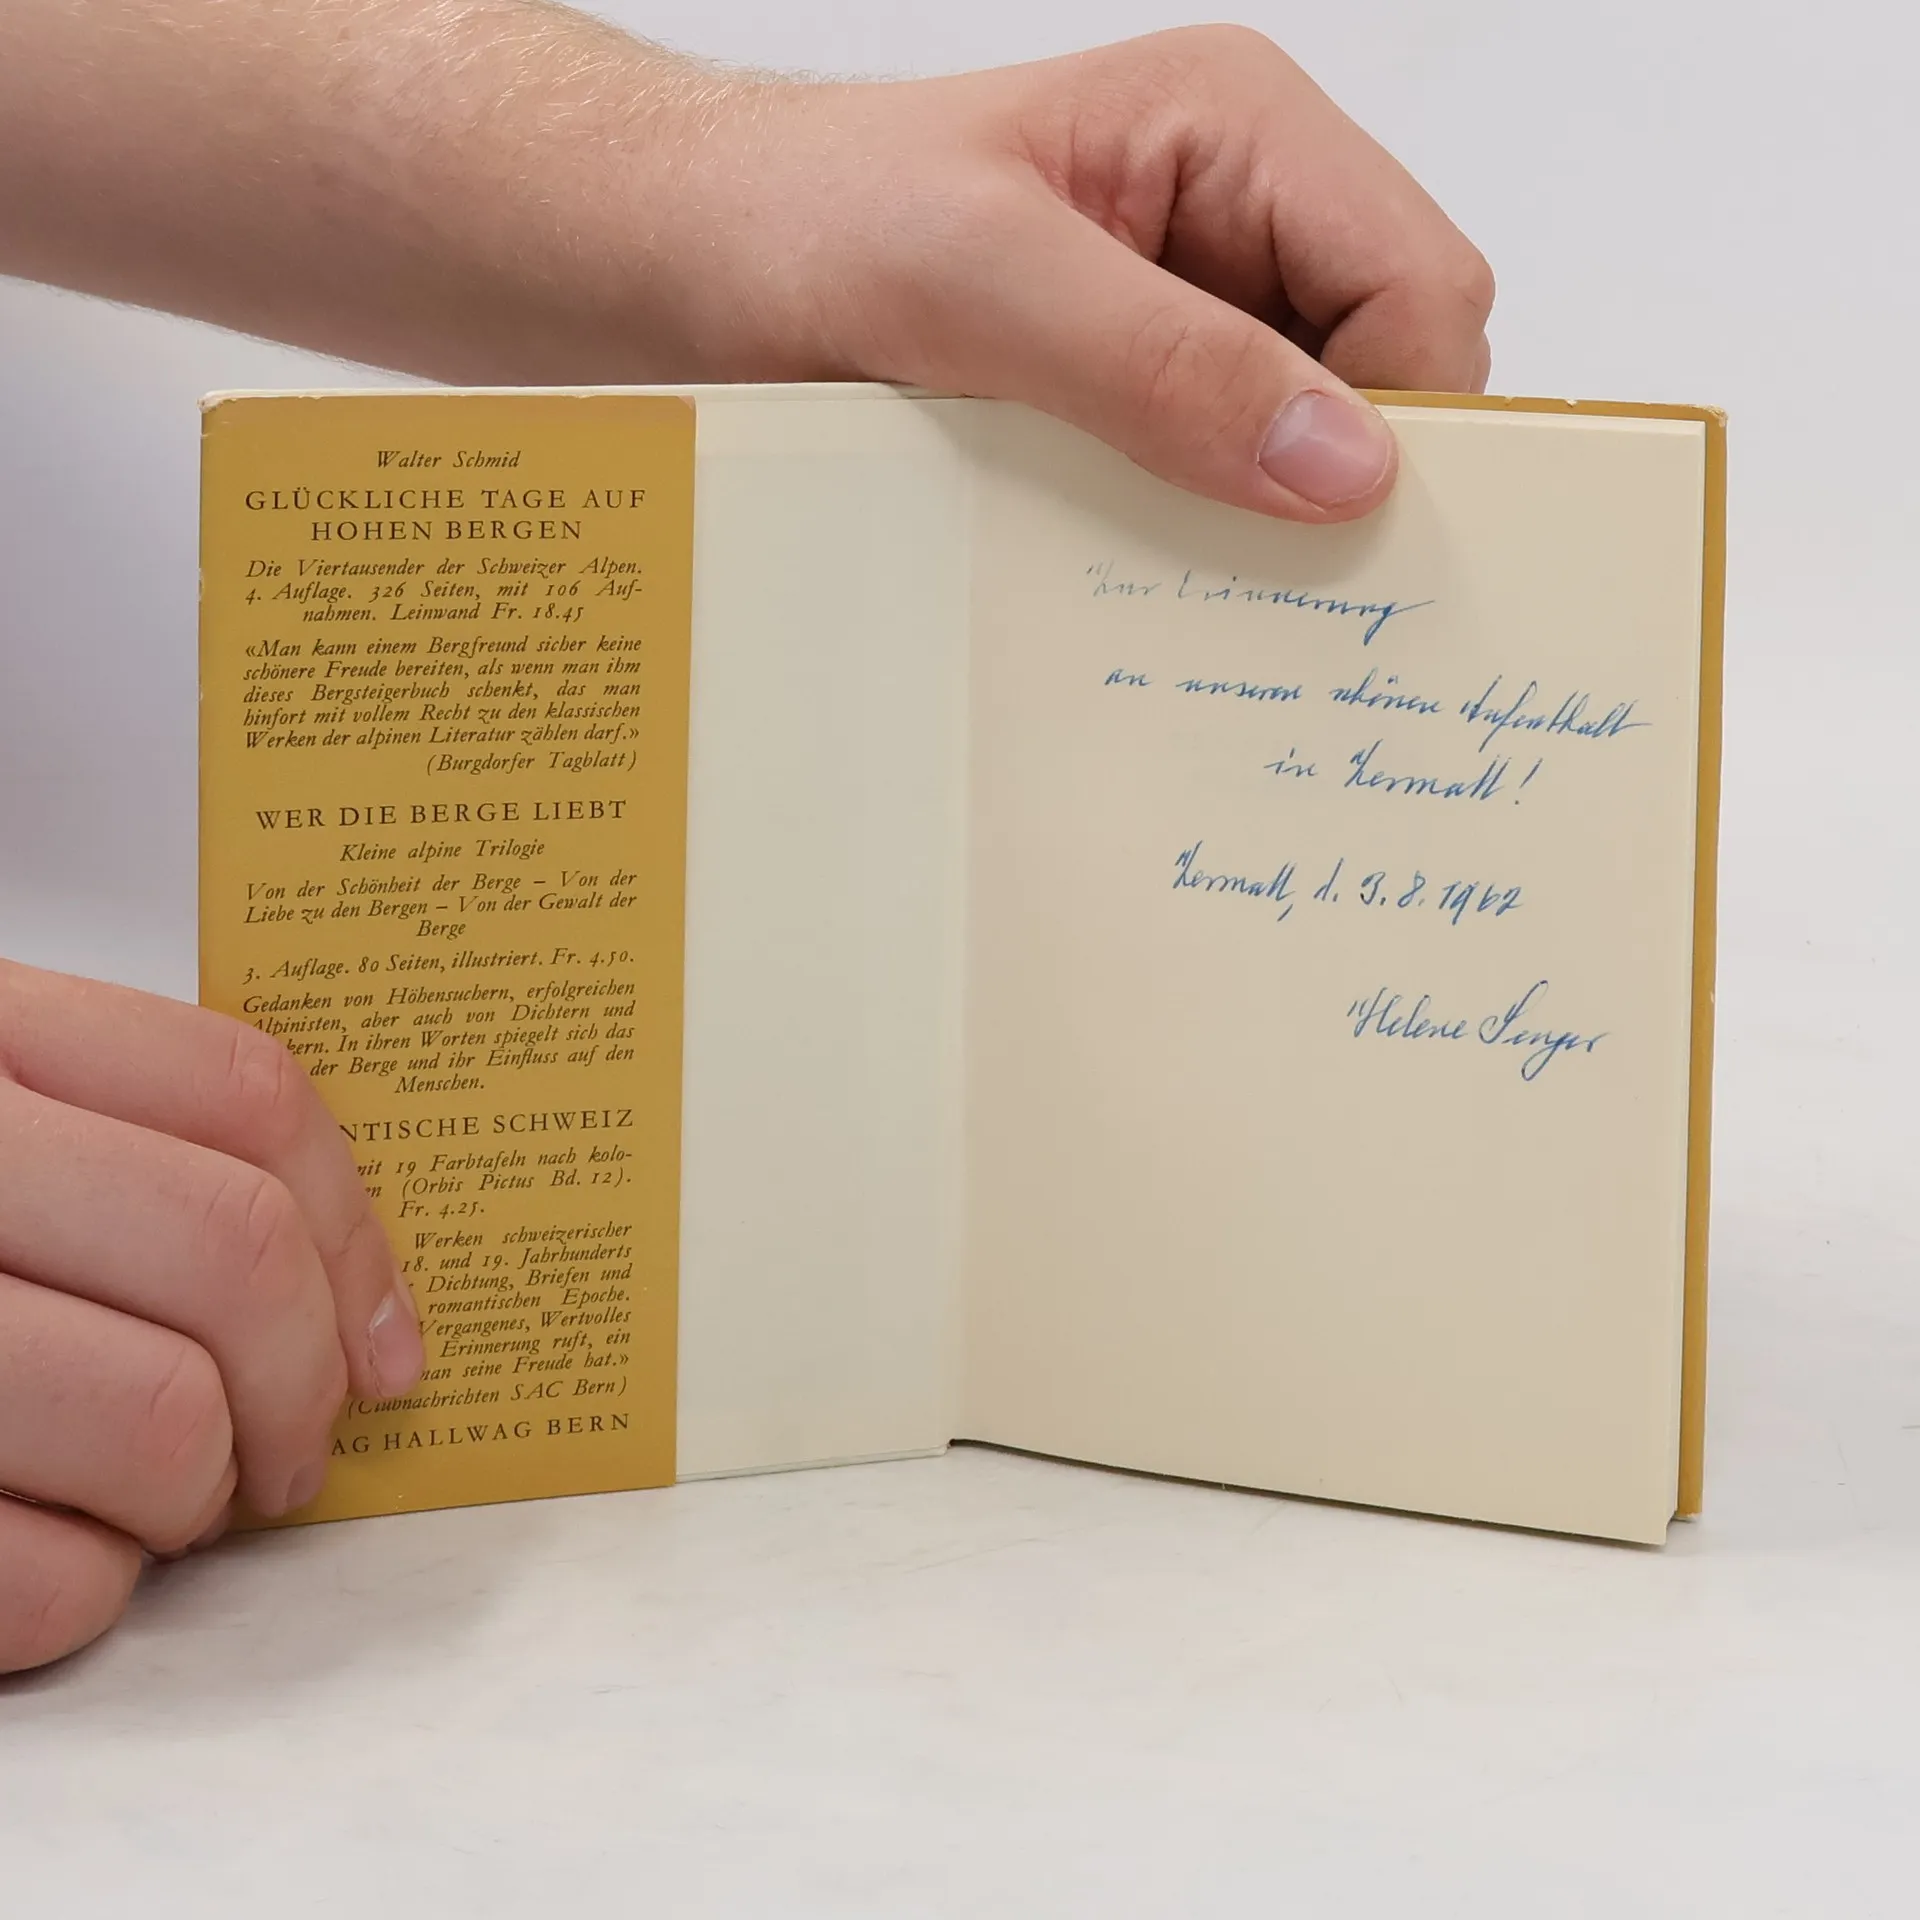 Walter Schmid
GLÜCKLICHE TAGE AUF
HOHEN BERGEN
Die Viertausender der Schweizer Alpen.
4. Auflage. 326 Seiten, mit 106 Auf-
nahmen. Leinwand Fr. 18.45
«Man kann einem Bergfreund sicher keine
schönere Freude bereiten, als wenn man ihm
dieses Bergsteigerbuch schenkt, das man
hinfort mit vollem Recht zu den klassischen
Werken der alpinen Literatur zählen darf.»
(Burgdorfer Tagblatt)
WER DIE BERGE LIEBT
Kleine alpine Trilogie
Von der Schönheit der Berge – Von der
Liebe zu den Bergen – Von der Gewalt der
Berge
3. Auflage. 80 Seiten, illustriert. Fr. 4.50.
Gedanken von Höhensuchern, erfolgreichen
Alpinisten, aber auch von Dichtern und
kern. In ihren Worten spiegelt sich das
der Berge und ihr Einfluss auf den
Menschen.
NTISCHE SCHWEIZ
mit 19 Farbtafeln nach kolo-
en (Orbis Pictus Bd. 12).
Fr. 4.25.
Werken schweizerischer
18. und 19. Jahrhunderts
Dichtung, Briefen und
romantischen Epoche.
Vergangenes, Wertvolles
Erinnerung ruft, ein
man seine Freude hat.»
(Clubnachrichten SAC Bern)
AG HALLWAG BERN
Zur Erinnerung
an unseren schönen Aufenthalt
in Zermatt!
Zermatt, d. 3. 8. 1962
Helene Senger